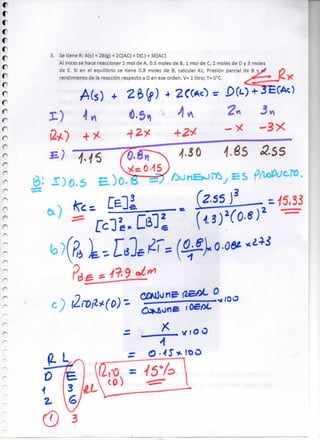 3. Se tiene R: A(s) + 2B(g) + 2C(AC) = D(L) + 3E(AC)
Al inicio se hace reaccionar 1 mol de A, 0.5 moles de B, 1 mol de C, 2 moles de D y 3 moles
de E. Si en el equilibrio se tiene 0.8 moles de B, calcular Kc, Presión parcial de B y
rendimiento de la reacción respecto a D en ese orden. V= 1 litro; T= 0°C.
Rx
A(s) + 2B(g) + 2C(Ac) = D(L) + 3E(Ac)
I) 1n 0.5n 1n 2n 3n
Rx) +x +2x +2x -x -3x
E) 1.15 0.8n 1.30 1.85 2.55
x=0.15
B: I) 0.5 E) 0.8 => AUMENTA, ES PRODUCTO.
a) Kc = [E]³e / [C]²e x [B]²e = (2.55)³ / (1.3)²(0.8)² = 15.33
b) (PB)e = [B]e RT = (0.8/1) x 0.082 x 273
PBe = 17.9 atm
c) %RTO Rx(D) = CONSUME REAL D / CONSUME IDEAL x100
= x / 1 x100
= 0.15 x 100
R L
D E
1 3
2 6
① 3
RL
%RTO (D) = 15%